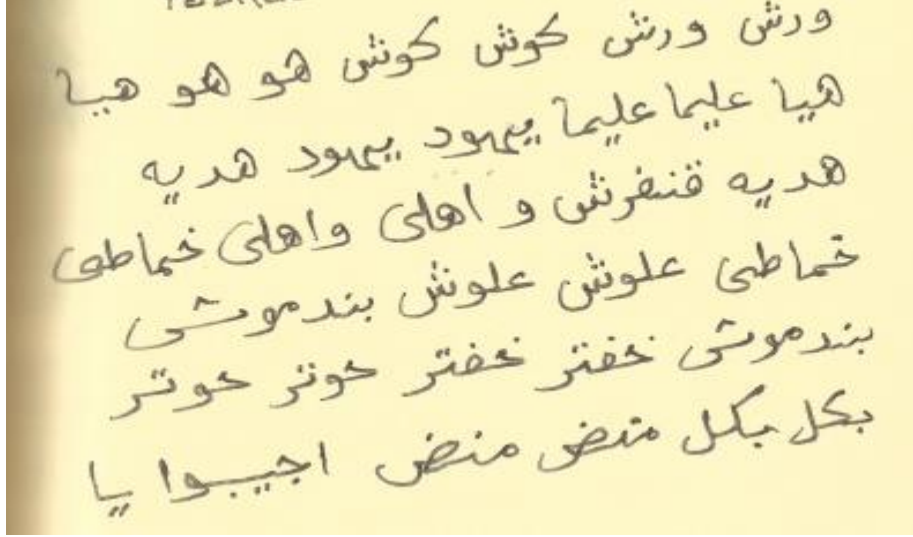 ورش ورش كوش كوش هو هو هيا
هيا عليما عليما يهود يهود هديه
هديه قنفرش و اهلى واهلى خماطى
خماطى علوش علوش بندموشى
بندموشى خفتر خفتر حوتر حوتر
بكل بكل منض منض اجيبوا يا